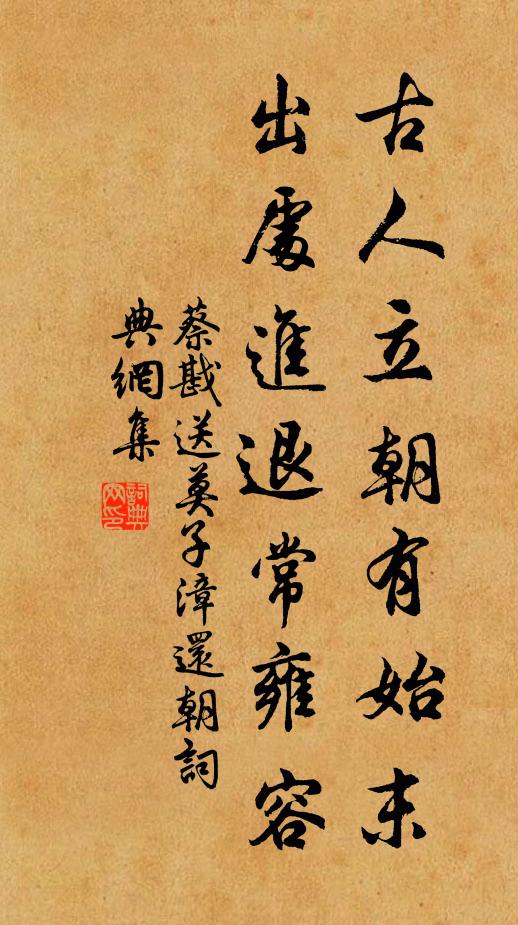 古人立朝有始末
出處進退常雍容
蔡戡送莫子漳還朝詞
典網集
詞典網印